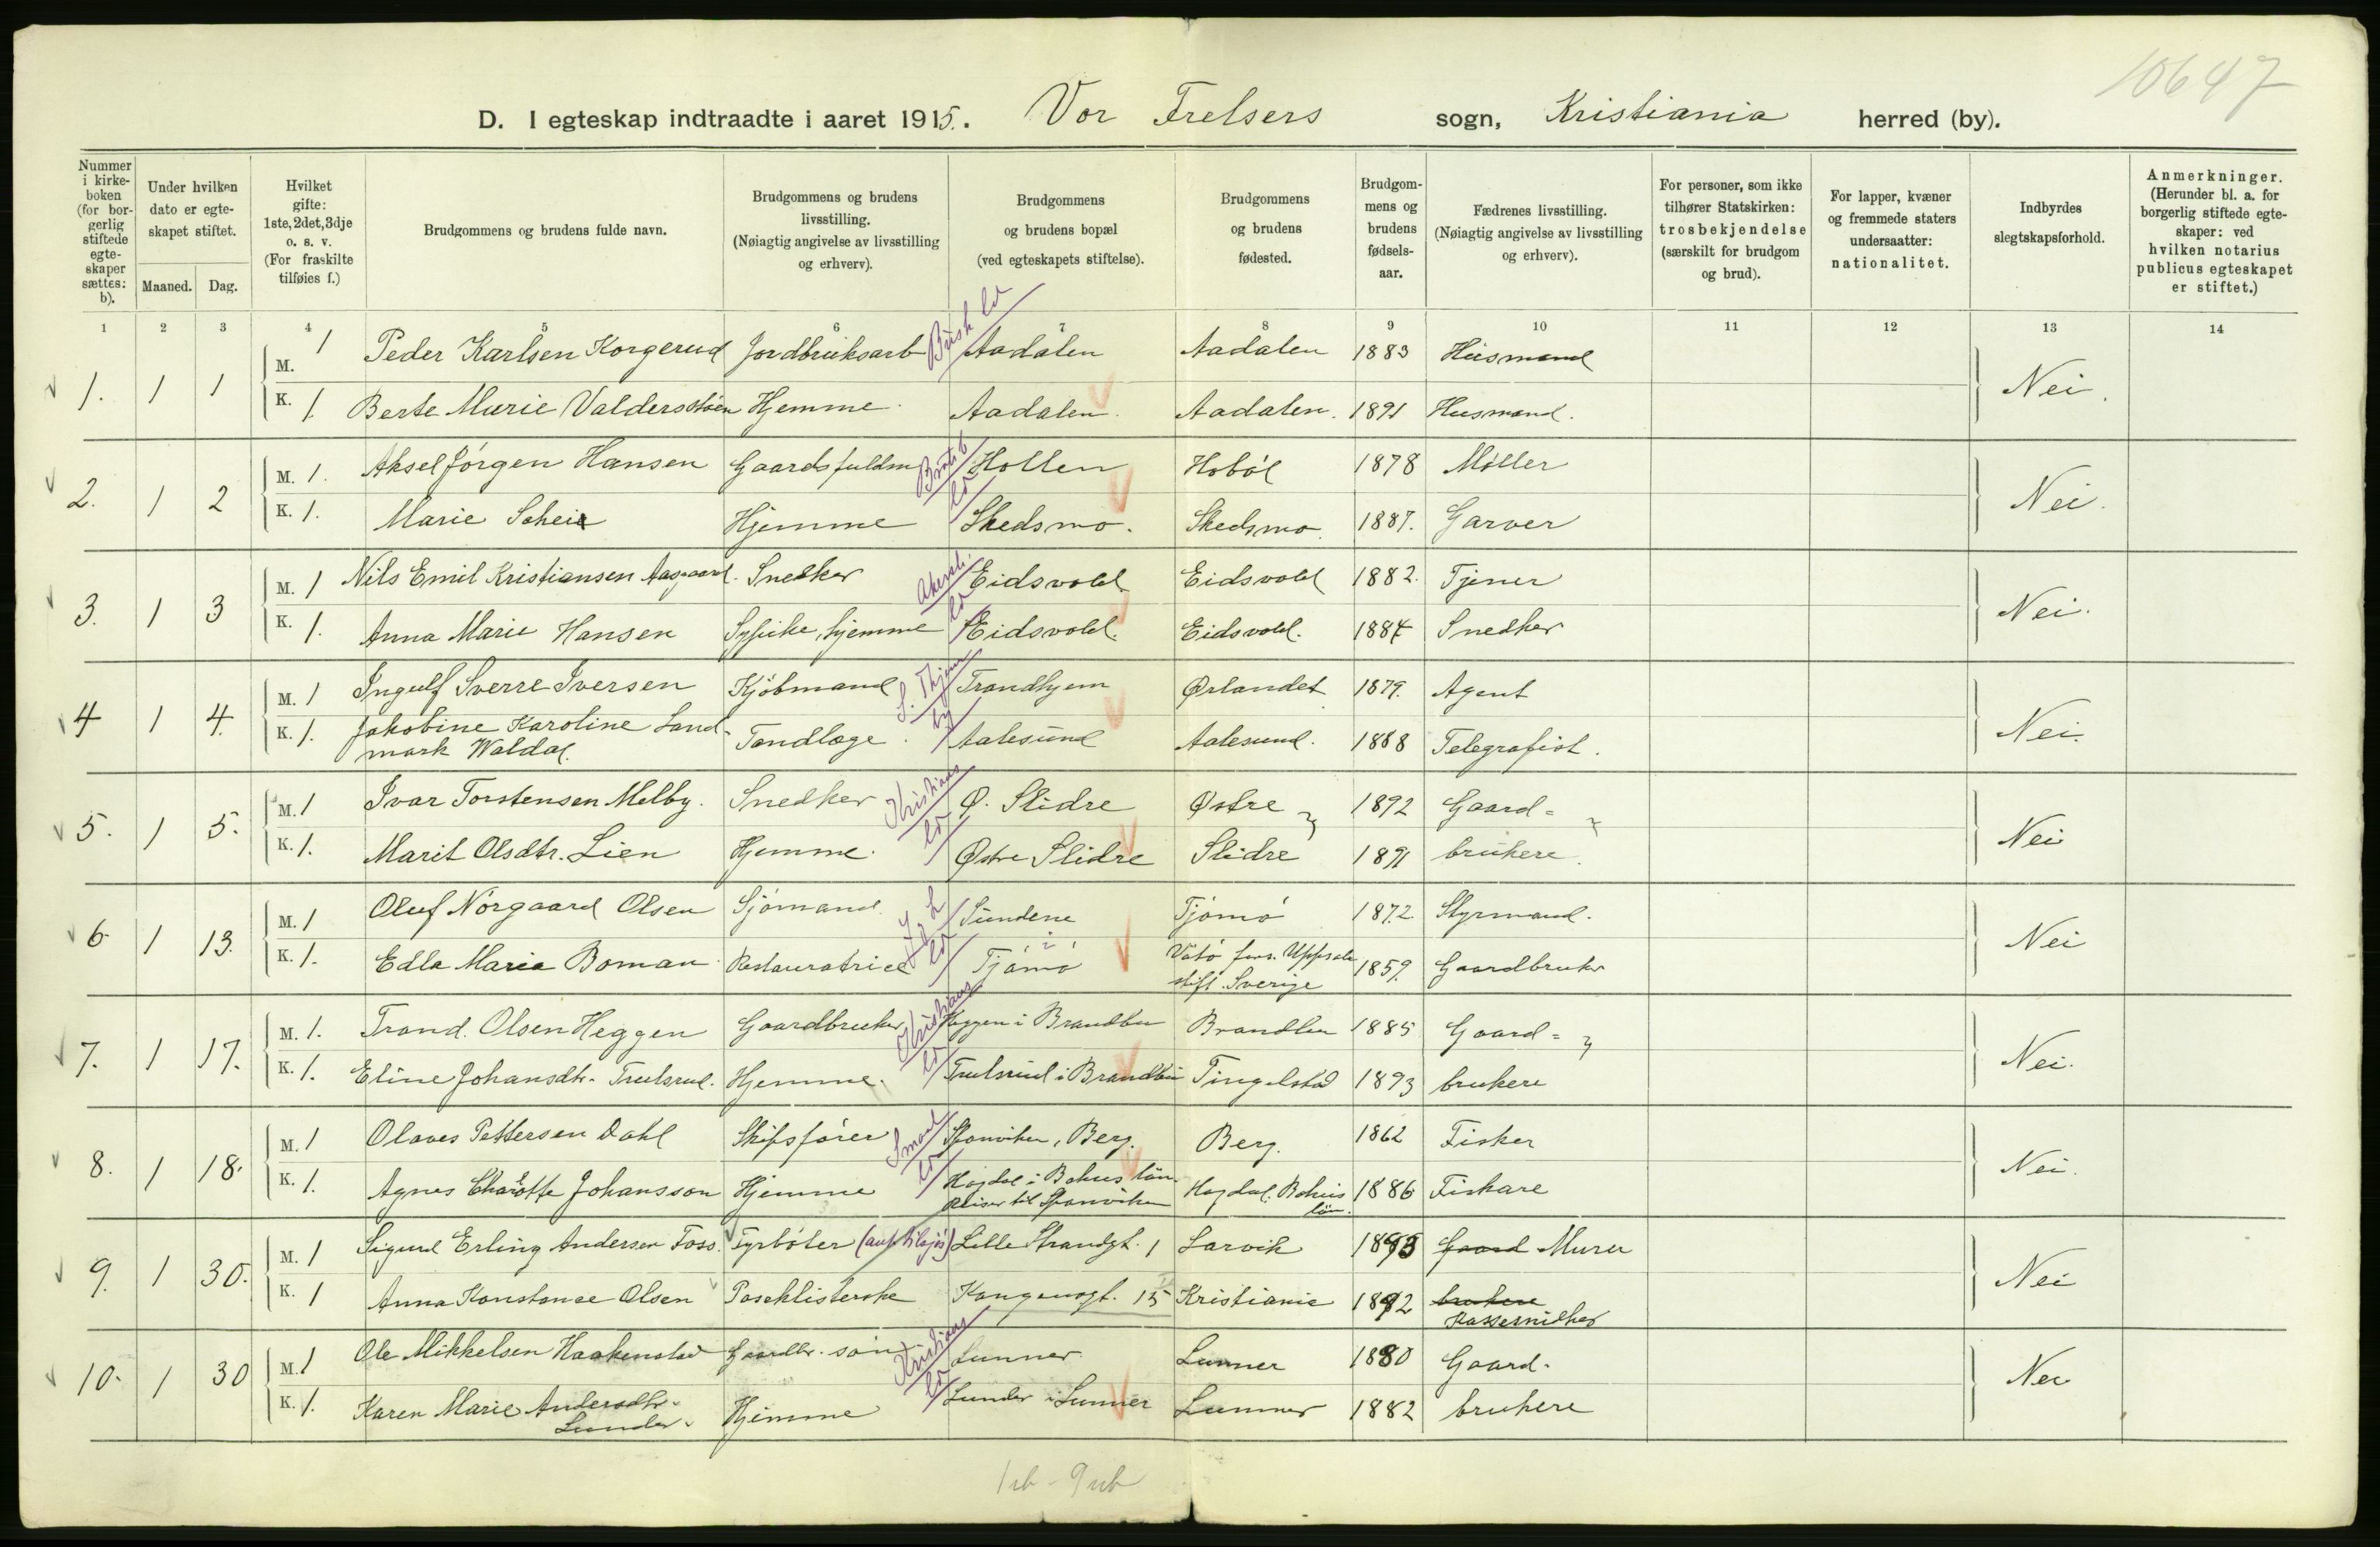 10647
D. I egteskap indtraadte i aaret 1915. Vor Frelsers sogn, Kristiania herred (by).
Nummer i kirkeboken (for borgerlig stiftede egteskaper sættes: b).
Under hvilken dato er egteskapet stiftet.
Maaned. Dag.
Hvilket gifte: 1ste, 2det, 3dje o. s. v. (For fraskilte tilføies f.)
Brudgommens og brudens fulde navn.
Brudgommens og brudens livsstilling. (Nøiagtig angivelse av livsstilling og erhverv).
Brudgommens og brudens bopæl (ved egteskapets stiftelse).
Brudgommens og brudens fødested.
Brudgommens og brudens fødselsaar.
Fædrenes livsstilling. (Nøiagtig angivelse av livsstilling og erhverv).
For personer, som ikke tilhører Statskirken: trosbekjendelse (særskilt for brudgom og brud).
For lapper, kvæner og fremmede staters undersaatter: nationalitet.
Indbyrdes slegtskapsforhold.
Anmerkninger. (Herunder bl. a. for borgerlig stiftede egteskaper: ved hvilken notarius publicus egteskapet er stiftet.)
1 2 3 4 5 6 7 8 9 10 11 12 13 14
1. 1 1 M. 1 Peder Karlsen Korgerud Jordbruksarb Busk ld Aadalen Aadalen 1883 Husmand Nei.
K. 1. Berte Marie Valdersstøen Hjemme. Aadalen. Aadalen. 1891 Husmand.
2. 1 2 M. 1. Aksel Jørgen Hansen Gaardsfuldm Hollen Hobøl 1878 Møller Nei.
K. 1. Marie Scheie Hjemme Skedsmo. Skedsmo. 1887. Garver
3. 1 3 M. 1 Nils Emil Kristiansen Aasgaard. Snedker Akersh. ld Eidsvold Eidsvold 1882. Tjener Nei.
K. 1. Anna Marie Hansen Sypike, hjemme Eidsvold. Eidsvold. 1884 Snedker
4 1 4. M. 1 Ingulf Sverre Iversen Kjøbmand S. Thjem by Trondhjem Ørlandet 1879. Agent Nei.
K. 1. Jakobine Karoline Landmark Waldal. Tandlæge. Aalesund Aalesund. 1888 Telegrafist.
5. 1 5. M. 1 Ivar Torstensen Melby. Snedker Kristians ld Ø. Slidre Østre 1892 Gaard- Nei
K. 1. Marit Olsdtr. Lien Hjemme. Østre Slidre Slidre 1891 brukere.
6. 1 13. M. 1 Oluf Nørgaard Olsen Sjømand. J & L ld Sundene Tjømø 1872. Styrmand. Nei
K. 1. Edla Maria Boman. Restauratrice i Tjømø Vätö förs. Uppsala stift. Sverige 1859. Gaardbruker
7. 1 17. M. 1. Trond. Olsen Heggen Gaardbruker Kristians ld Heggen i Brandbu Brandbu 1885 Gaard- Nei.
K. 1. Eline Johansdtr. Trulsrud. Hjemme. Trulsrud i Brandbu Tingelstad 1893 brukere
8. 1 18. M. 1 Olaves Pettersen Dahl Skibsfører Smaal ld Sponviken, Berg. Berg. 1862 Fisker Nei.
K. 1. Agnes Charlotte Johansson Hjemme Hogdal i Bohus län. reiser til Sponviken Hogdal. Bohus län. 1886 Fiskare
9. 1 30. M. 1 Sigurd Erling Andersen Foss. Fyrbøter Lille Strandgt. 1 Larvik 1893 Gaard Murer Nei
K. 1 Anna Konstanse Olsen Poseklisterske Kongensgt. 15 Kristiania 1892 brukere Kassesnedker
10. 1 30 M. 1 Ole Mikkelsen Haakenstad Gaardbr. søn Kristians ld Lunner Lunner 1880 Gaard- Nei
K. 1. Karen Marie Andersdtr. Lunder. Hjemme Lunder i Lunner Lunner 1882 brukere
1 ub - 9 ub